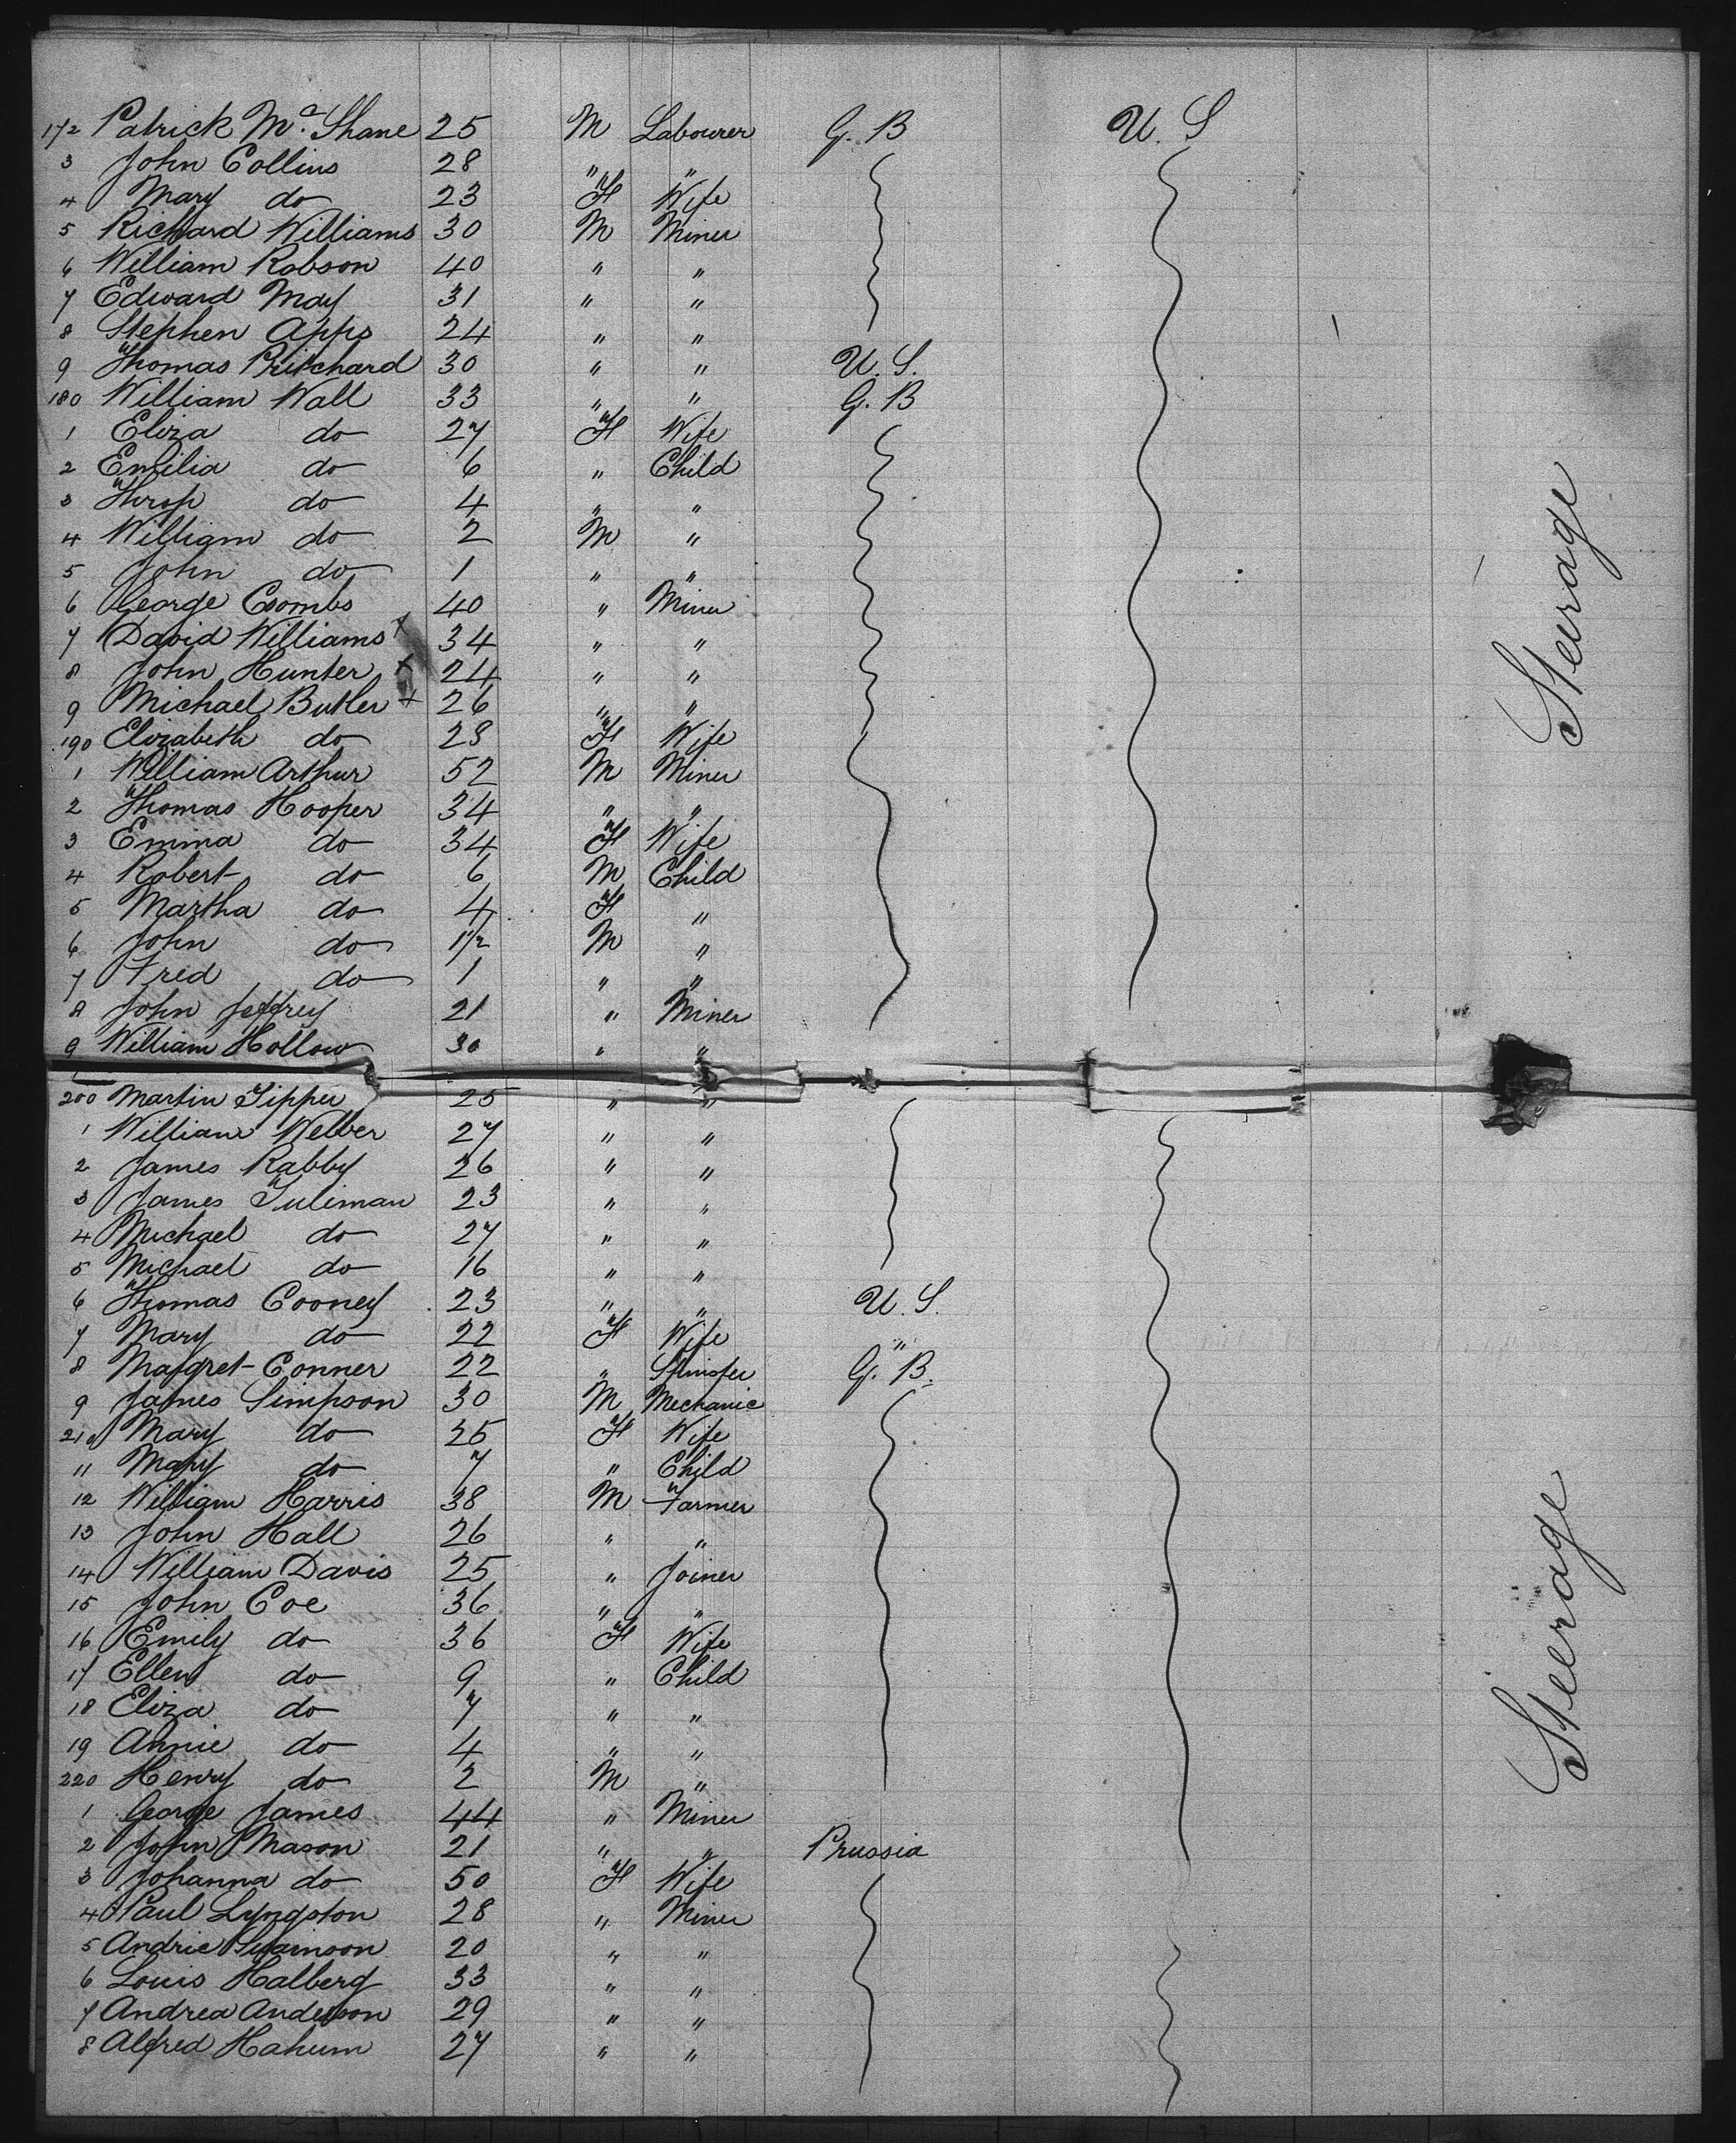 172 Patrick Mc. Shane 25 M Labourer G. B U. S
3 John Collins 28 " "
4 Mary do 23 F Wife
5 Richard Williams 30 M Miner
6 William Robson 40 " "
7 Edward May 31 " "
8 Stephen Apps 24 " "
9 Thomas Pritchard 30 " " U. S.
180 William Wall 33 " " G. B
1 Eliza do 27 F Wife
2 Emilia do 6 " Child
3 do 4 " "
4 William do 2 M "
5 John do 1 " "
6 George Coombs 40 " Miner
7 David Williams x 34 " "
8 John Hunter x 24 " "
9 Michael Butler + 26 " "
190 Elizabeth do 28 F Wife
1 William Arthur 52 M Miner
2 Thomas Hooper 34 " "
3 Emma do 34 F Wife
4 Robert do 6 M Child
5 Martha do 4 F "
6 John do 1/2 M "
7 Fred do 1 " "
8 John Jeffrey 21 " Miner
9 William Hollow 30 " "
200 Martin 25 " "
1 William Welber 27 " "
2 James Rabby 26 " "
3 James Tuliman 23 " "
4 Michael do 27 " "
5 Michael do 16 " "
6 Thomas Cooney 23 " " U. S.
7 Mary do 22 F Wife "
8 Margret Conner 22 " Spinster G. B.
9 James Simpson 30 M Mechanic
210 Mary do 25 F Wife
11 Mary do 7 " Child
12 William Harris 38 M Farmer
13 John Hall 26 " "
14 William Davis 25 " Joiner
15 John Coe 36 " "
16 Emily do 36 F Wife
17 Ellen do 9 " Child
18 Eliza do 7 " "
19 Annie do 4 " "
220 Henry do 2 M "
1 George James 44 " Miner
2 John Mason 21 " " Prussia
3 Johanna do 50 F Wife
4 Paul Lyngston 28 " Miner
5 Andrie Swainson 20 " "
6 Louis Halberg 33 " "
7 Andrea Anderson 29 " "
8 Alfred Hahum 27 " "
Steerage
Steerage